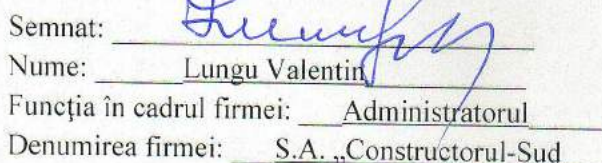 Semnat:
Nume: Lungu Valentin
Funcţia în cadrul firmei: Administratorul
Denumirea firmei: S.A. „Constructorul-Sud